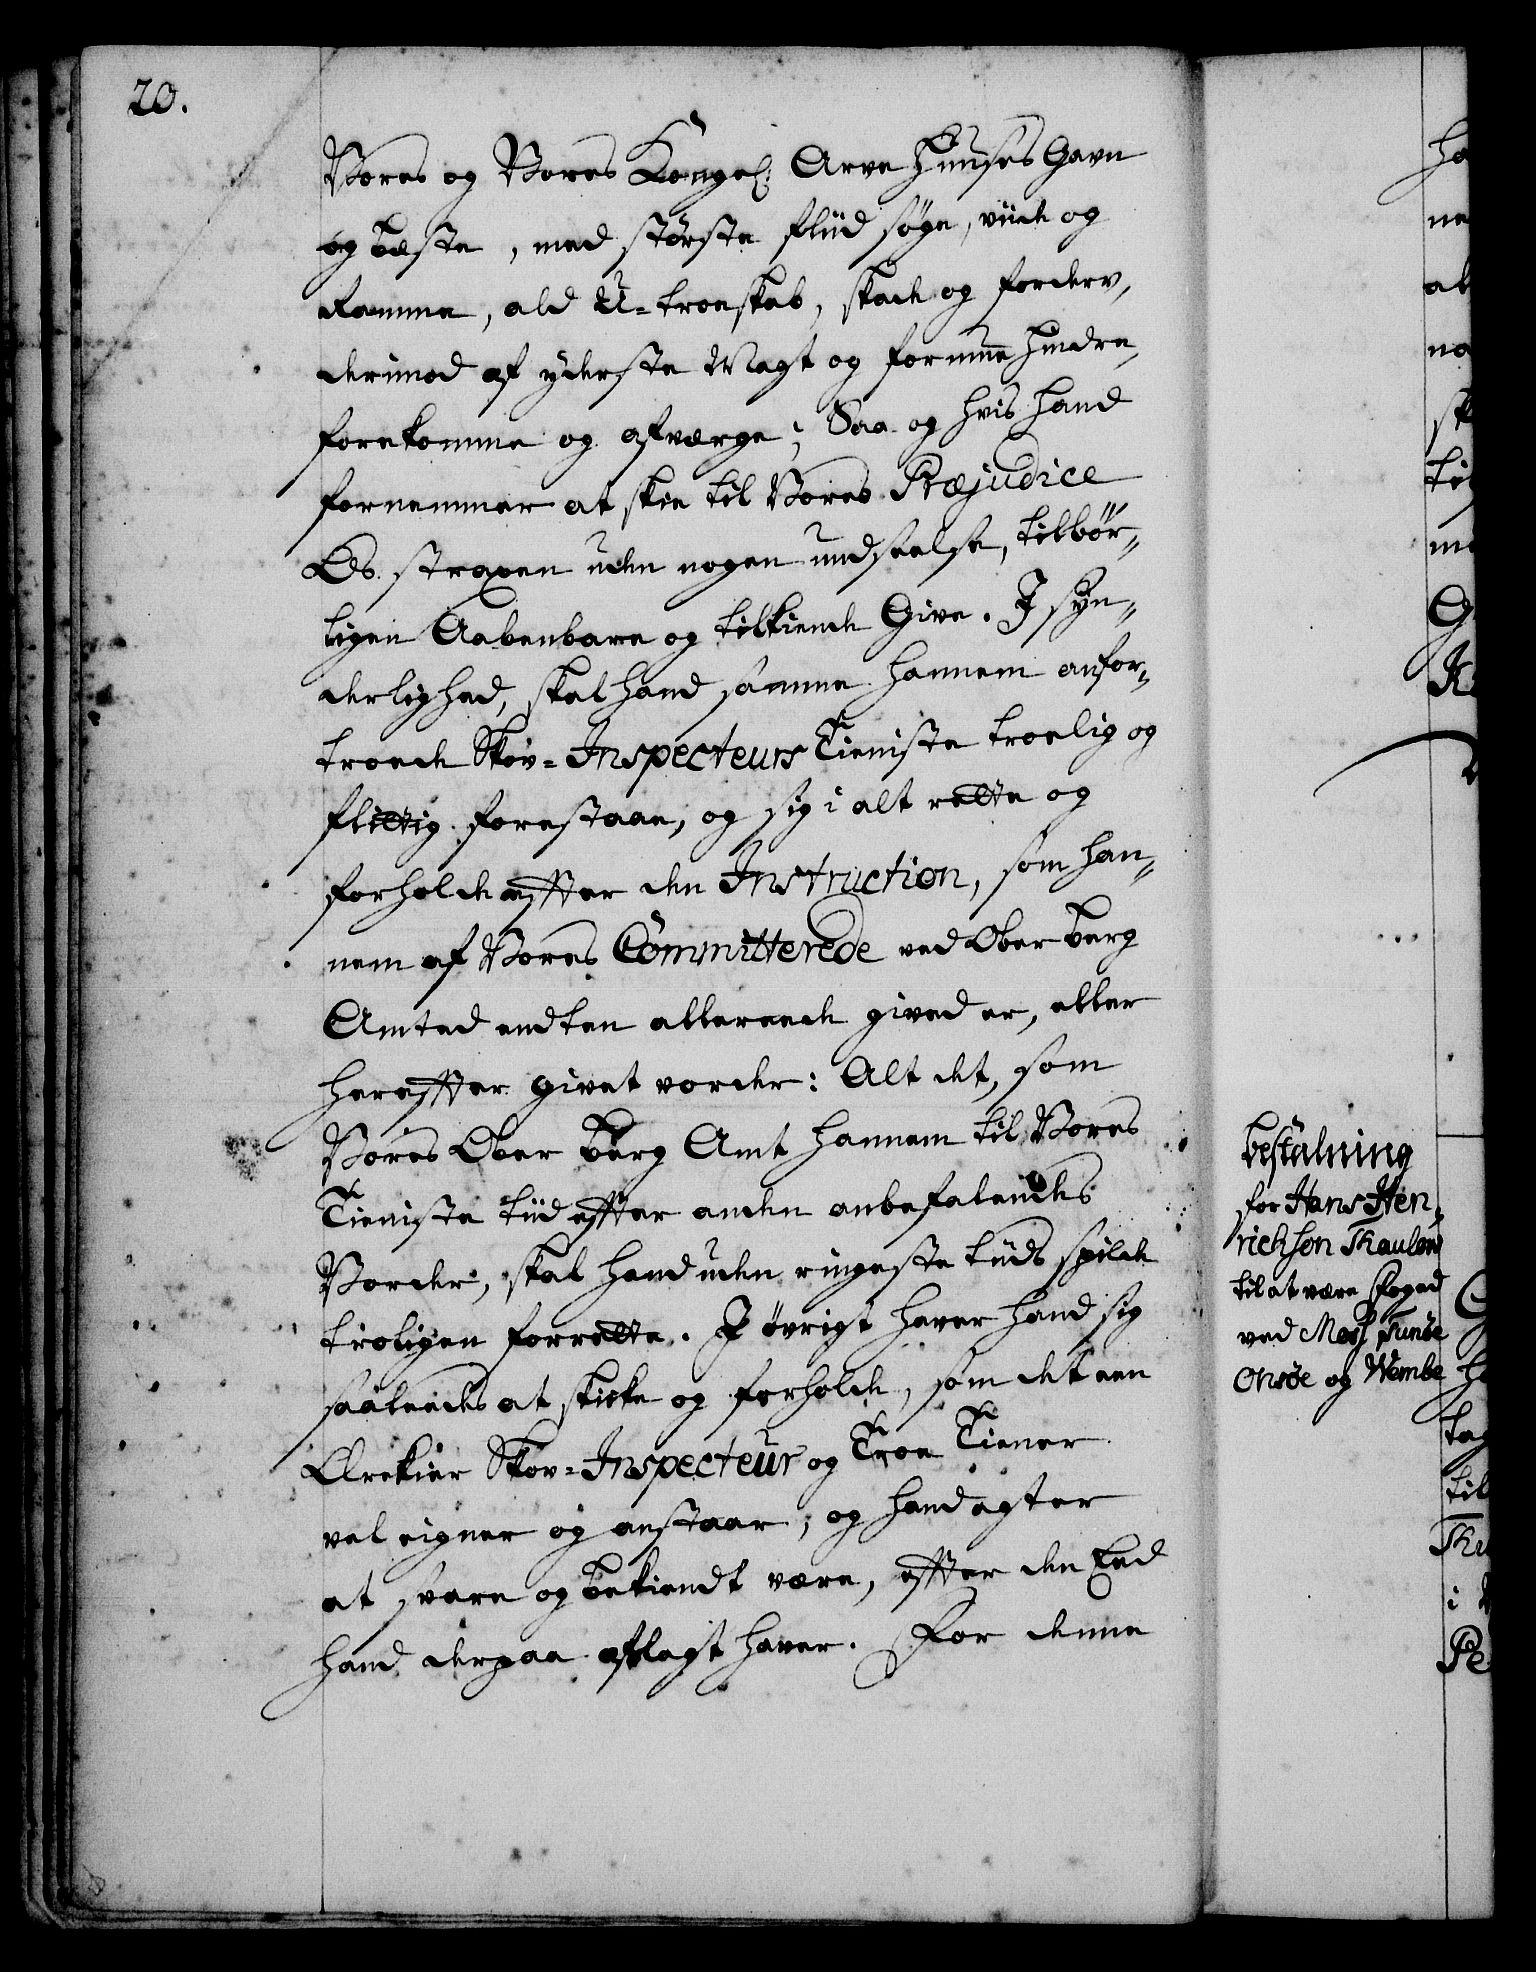 20.
Vores og Vores Kongel: Arve Huuses Gavn
og beste, med største fliid søge, viide og
ramme, ald U-troeskab, skade og forderv,
derimod af yderste Magt og formue hindre,
forekomme og afværge; Saa og hvis hand
fornemmer at skee til Vores Præjudice
Os straxen uden nogen undseelse, tilbør-
ligen Aabenbare og tilkiende Give. I syn-
derlighed, skal hand samme hannem anfor-
troede Skov-Inspecteurs Tieniste troelig og
flittig forestaae, og sig i alt rette og
forholde effter den Instruction, som han-
nem af Vores Committerede ved Ober berg
Amted endten allereede gived er, eller
hereffter givet vorder: Alt det, som
Vores Ober berg Amt hannem til Vores
Tieniste tiid effter anden anbefalendes
Vorder, skal hand uden ringeste tiids spilde
troligen forrette. I øvrigt haver hand sig
saaleedes at skicke og forholde, som det een
Ærekier Skov-Inspecteur og Troe Tiener
vel eigner og anstaar, og hand agter
at svare og bekiendt være, effter den Eed
hand derpaa aflagt haver. For denne
bestalning
for Hans Hen-
richsøn Thaulow
til at være Foged
ved Moss Tunøe
Onsøe og Wembe